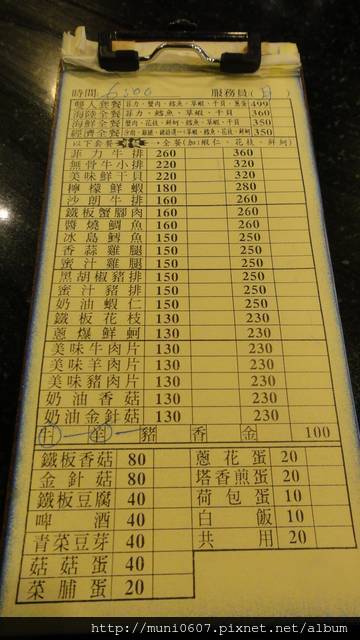 時間 6:00 服務員( )
雙人套餐 菲力、蟹肉、鱈魚、草蝦、干貝、煎蛋 499
海陸全餐 菲力、鱈魚、草蝦、干貝 360
海鮮全餐 蟹肉、花枝、鮮蚵、草蝦、鱈魚、干貝 350
經濟全餐 350
以下套餐 →全餐(加)蝦仁、花枝、鮮蚵
菲力牛排 260 360
無骨牛小排 220 320
美味鮮干貝 220 320
檸檬鮮蝦 180 280
沙朗牛排 160 260
鐵板蟹腳肉 160 260
醬燒鯛魚 160 260
冰島鱈魚 150 250
香蒜雞腿 150 250
蜜汁雞腿 150 250
黑胡椒豬排 150 250
蜜汁豬排 150 250
奶油蝦仁 150 250
鐵板花枝 130 230
蔥爆鮮蚵 130 230
美味牛肉片 130 230
美味羊肉片 130 230
美味豬肉片 130 230
奶油香菇 130 230
奶油金針菇 130 230
牛 羊 豬 香 金 100
鐵板香菇 80 蔥花蛋 20
金針菇 80 塔香煎蛋 20
鐵板豆腐 40 荷包蛋 10
啤酒 40 白飯 10
青菜豆芽 40 共用 20
菇菇蛋 40
菜脯蛋 20
http://muni0607.pixnet.net/album